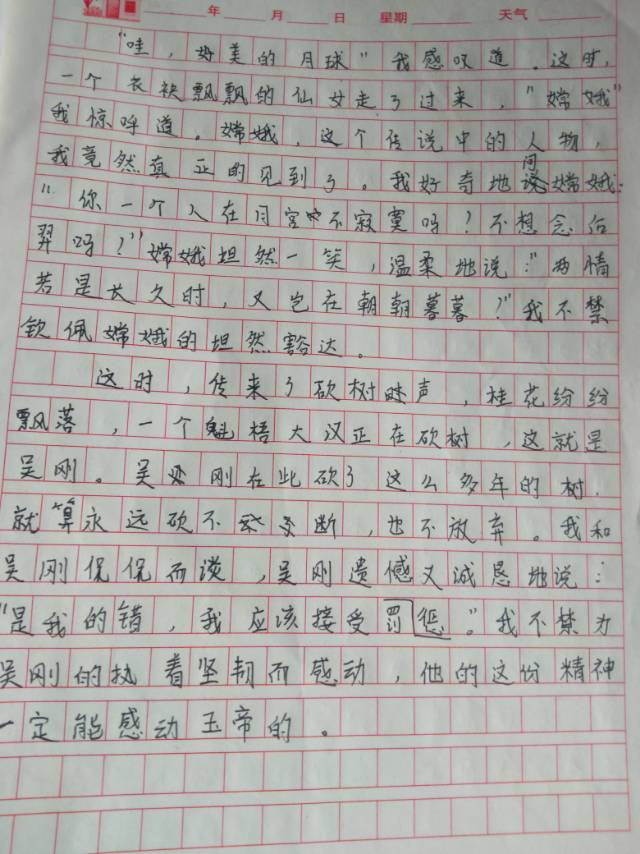 年 月 日 星期 天气
“哇，好美的月球”我感叹道。这时，
一个衣袂飘飘的仙女走了过来，“嫦娥”
我惊呼道。嫦娥，这个传说中的人物，
我竟然真正的见到了。我好奇地问嫦娥:
“你一个人在月宫中不寂寞吗？不想念后
羿吗？”嫦娥坦然一笑，温柔地说：“两情
若是长久时，又岂在朝朝暮暮？”我不禁
钦佩嫦娥的坦然豁达。
这时，传来了砍树声，桂花纷纷
飘落，一个魁梧大汉正在砍树，这就是
吴刚。吴刚在此砍了这么多年的树.
就算永远砍不断，也不放弃。我和
吴刚侃侃而谈，吴刚遗憾又诚恳地说：
“是我的错，我应该接受罚惩。”我不禁为
吴刚的执着坚韧而感动，他的这份精神
一定能感动玉帝的。